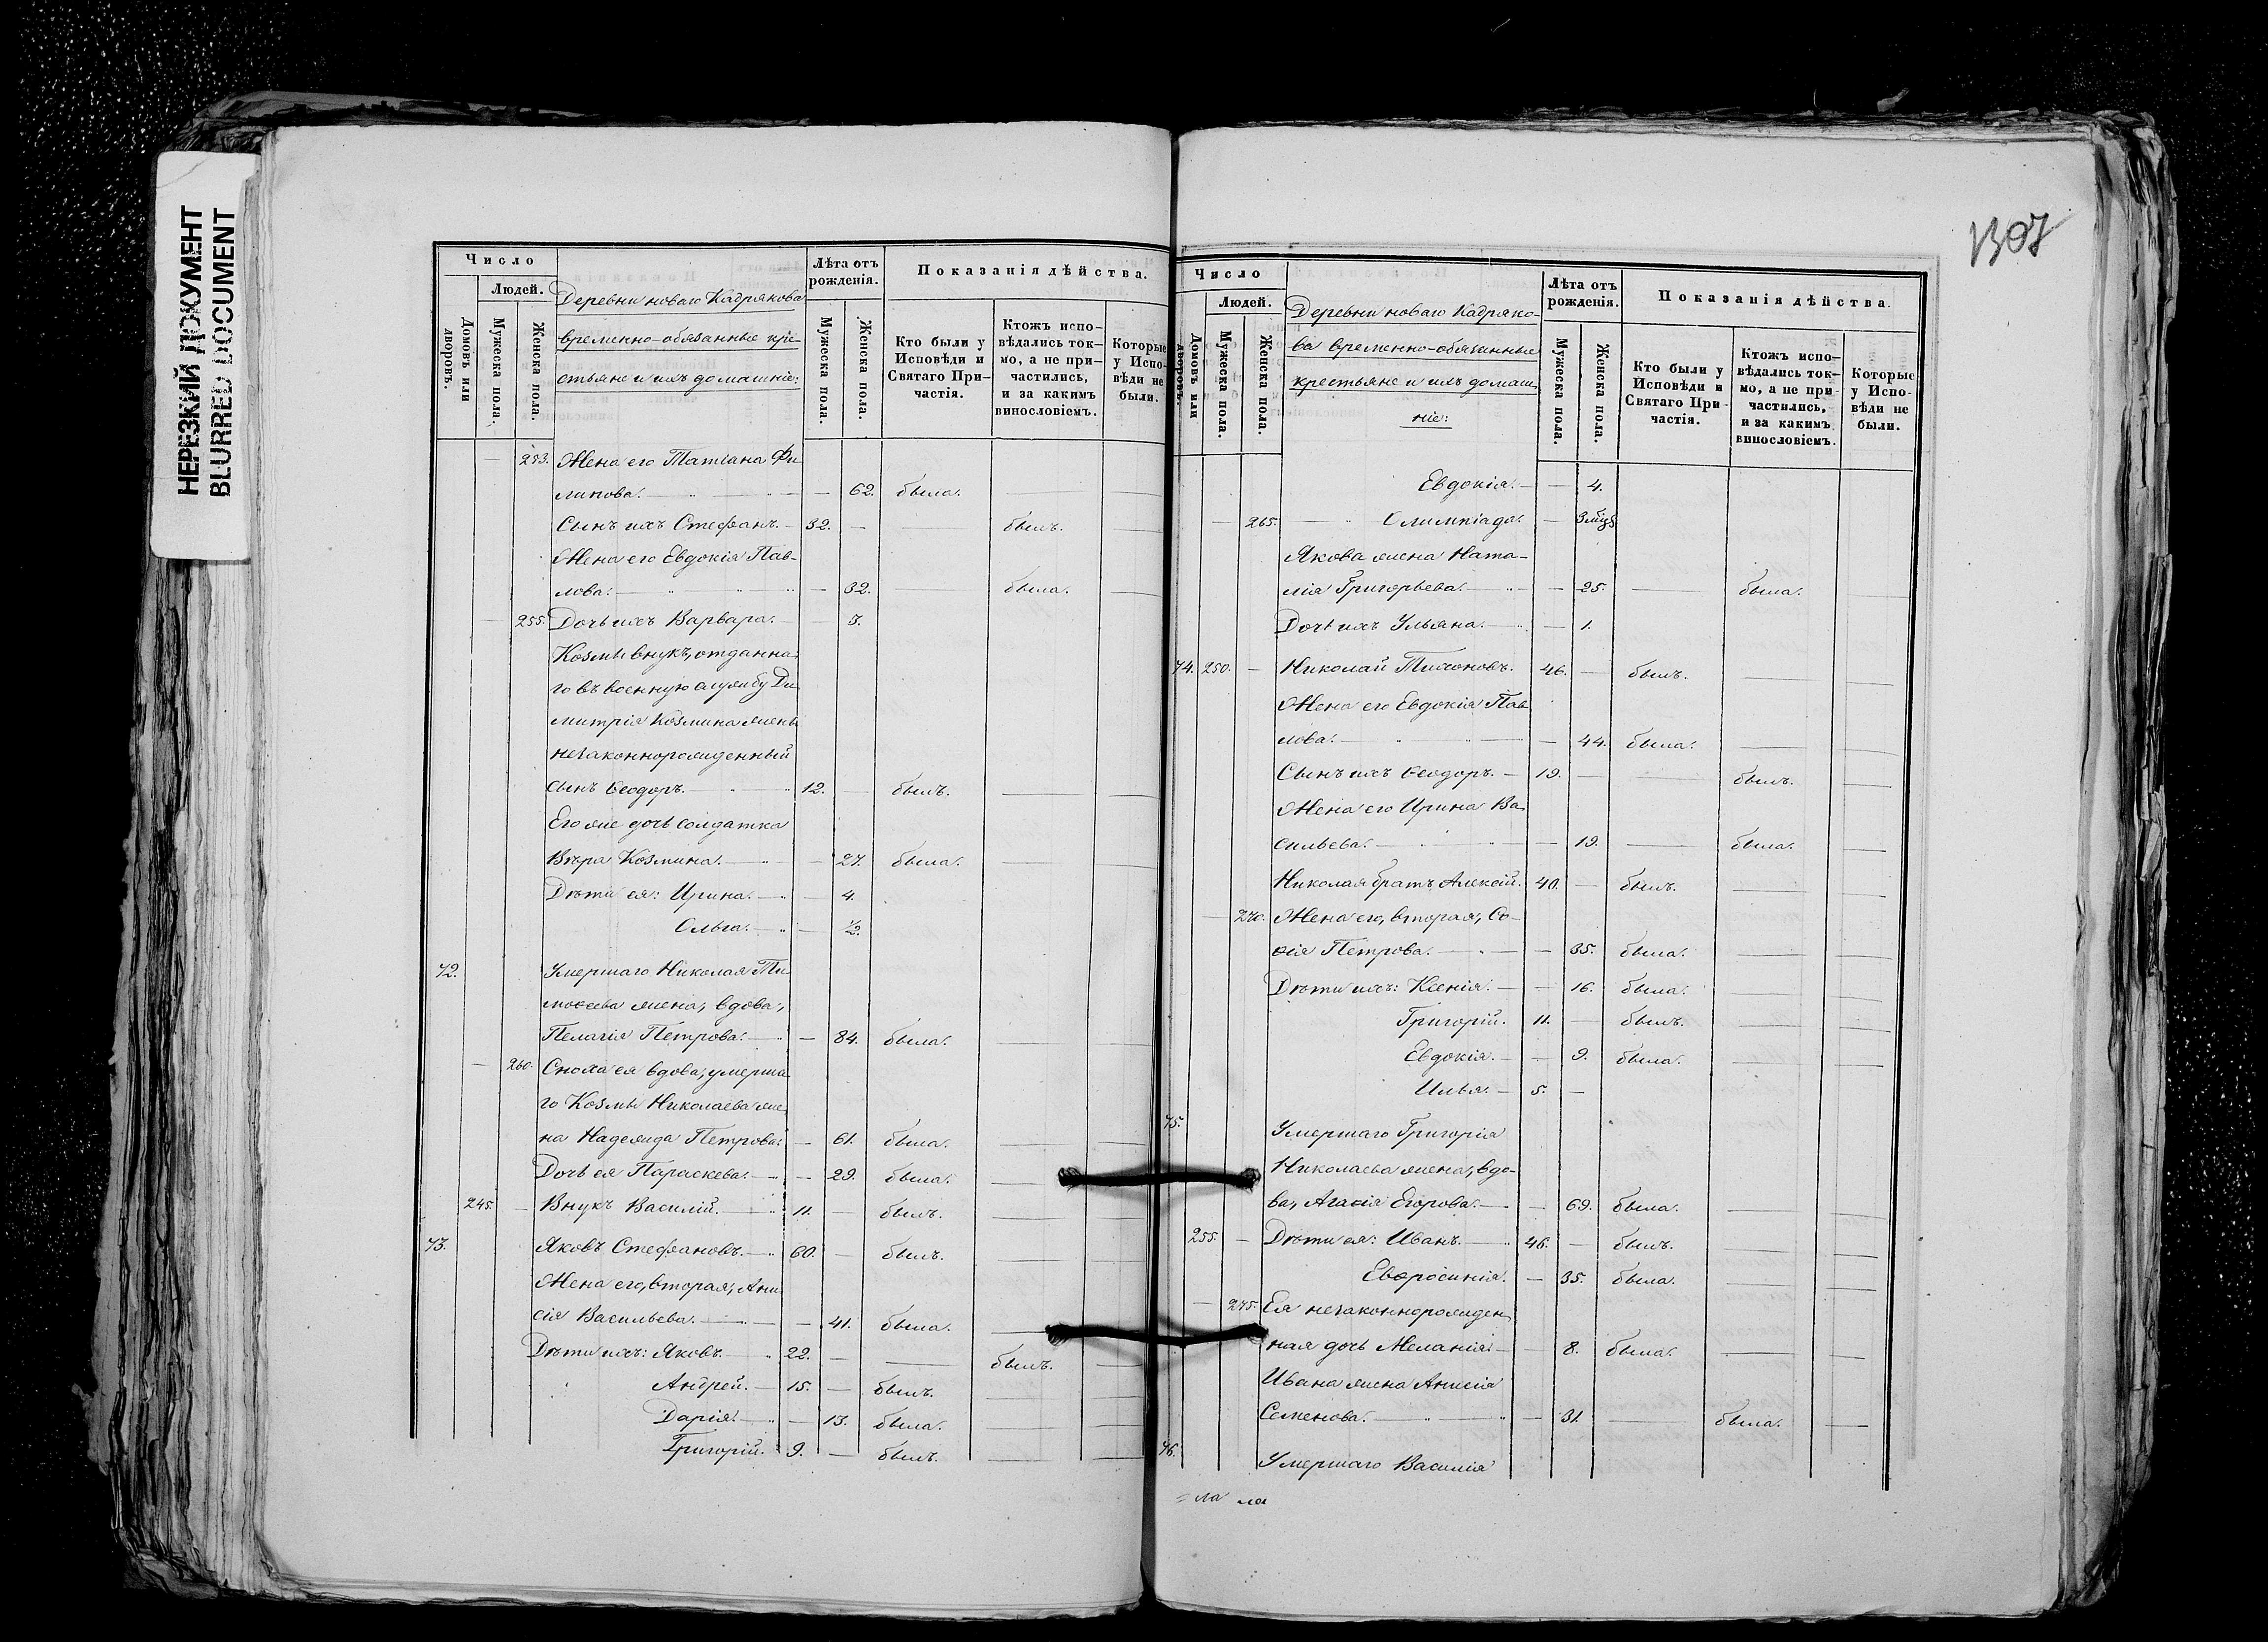 НЕРЕЗКИЙ ДОКУМЕНТ
BLURRED DOCUMENT
Число
Людей.
Домовъ или дворовъ.
Мужеска пола.
Женска пола.
Деревни новаго Кадрякова
временно-обязанные кре-
стьяне и ихъ домашніе:
Лѣта отъ рожденія.
Мужеска пола.
Женска пола.
Показанія дѣйства.
Кто были у Исповѣди и Святаго При-частія.
Ктожъ испо-вѣдались ток-мо, а не при-частились, и за какимъ винословіемъ.
Которые у Испо-вѣди не были.
— 253. Жена его Татіана Фи-
липова. — 62. была.
Сынъ ихъ Стефанъ. 32. — былъ.
Жена его Евдокія Пав-
лова. — 32. была.
— 255. Дочь ихъ Варвара. — 3.
Козмы внукъ, отданна-
го въ военную службу Ди-
митрія Козмина жены
незаконнорожденный
сынъ Ѳеодоръ. 12. — былъ.
Его же дочь солдатка
Вѣра Козмина. — 27. была.
Дѣти ея: Ирина. — 4.
Ольга. — ½.
72. Умершаго Николая Ти-
моѳеева жена, вдова,
Пелагія Петрова. — 84. была.
— 260. Сноха ея вдова, умерша-
го Козмы Николаева же-
на Надежда Петрова. — 61. была.
Дочь ея Параскева. — 29. была.
245. — Внукъ Василій. 11. — былъ.
73. Яковъ Стефановъ. 60. — былъ.
Жена его, вторая, Ани-
сія Васильева. — 41. была.
Дѣти ихъ: Яковъ. 22. — былъ.
Андрей. 15. — былъ.
Дарія. — 13. была.
Григорій. 9. — былъ.
1307
Число
Людей.
Домовъ или дворовъ.
Мужеска пола.
Женска пола.
Деревни новаго Кадряко-
ва временно-обязанные
крестьяне и ихъ домаш-
ніе:
Лѣта отъ рожденія.
Мужеска пола.
Женска пола.
Показанія дѣйства.
Кто были у Исповѣди и Святаго При-частія.
Ктожъ испо-вѣдались ток-мо, а не при-частились, и за какимъ винословіемъ.
Которые у Испо-вѣди не были.
Евдокія. — 4.
— 265. Олимпіада. — 3 мѣц
Якова жена Ната-
лія Григорьева. — 25. была.
Дочь ихъ Ульяна. — 1.
74. 250. — Николай Тихоновъ. 46. — былъ.
Жена его Евдокія Пав-
лова. — 44. была.
Сынъ ихъ Ѳеодоръ. 19. — былъ.
Жена его Ирина Ва-
сильева. — 19. была.
Николая братъ Алексій. 40. — былъ.
— 270. Жена его, вторая, Со-
ѳія Петрова. — 35. была.
Дѣти ихъ: Ксенія. — 16. была.
Григорій. 11. — былъ.
Евдокія. — 9. была.
Илья. 5. —
75. Умершаго Григорія
Николаева жена, вдо-
ва, Агаѳія Егорова. — 69. была.
255. — Дѣти ея: Иванъ. 46. — былъ.
Евѳросинія. — 35. была.
— 275. Ея незаконнорожден-
ная дочь Меланія. — 8. была.
Ивана жена Анисія
Семенова. — 31. была.
76. Умершаго Василія